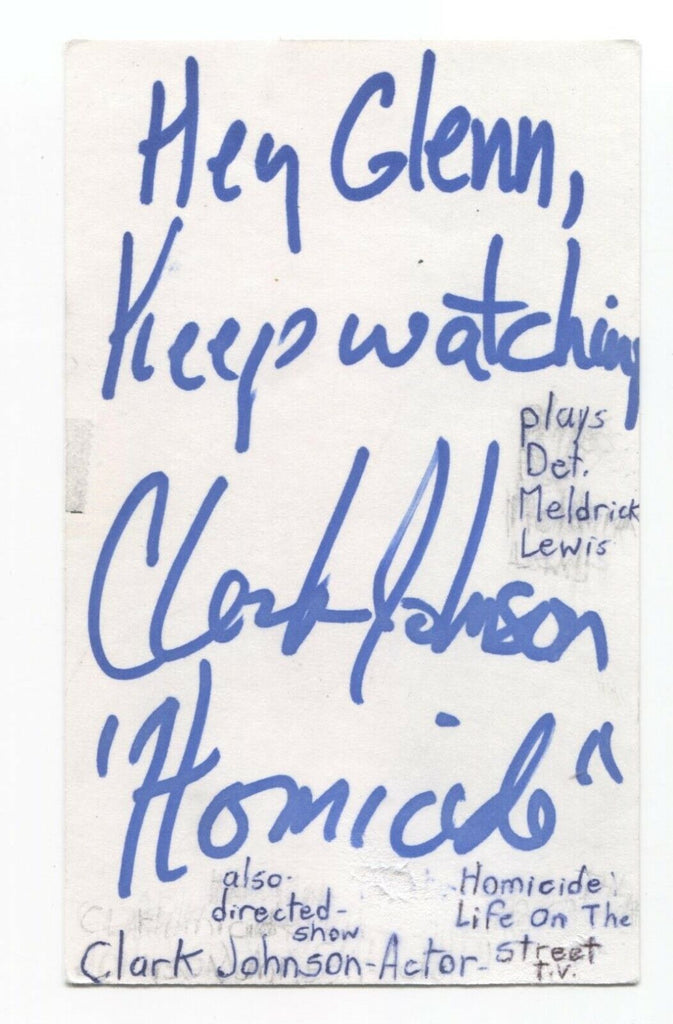 Hey Glenn,
Keep watching
plays
Det.
Meldrick
Lewis
Clark Johnson
"Homicide"
also-
directed-
show
Homicide
Life On The
Street
T.V.
Clark Johnson-Actor-